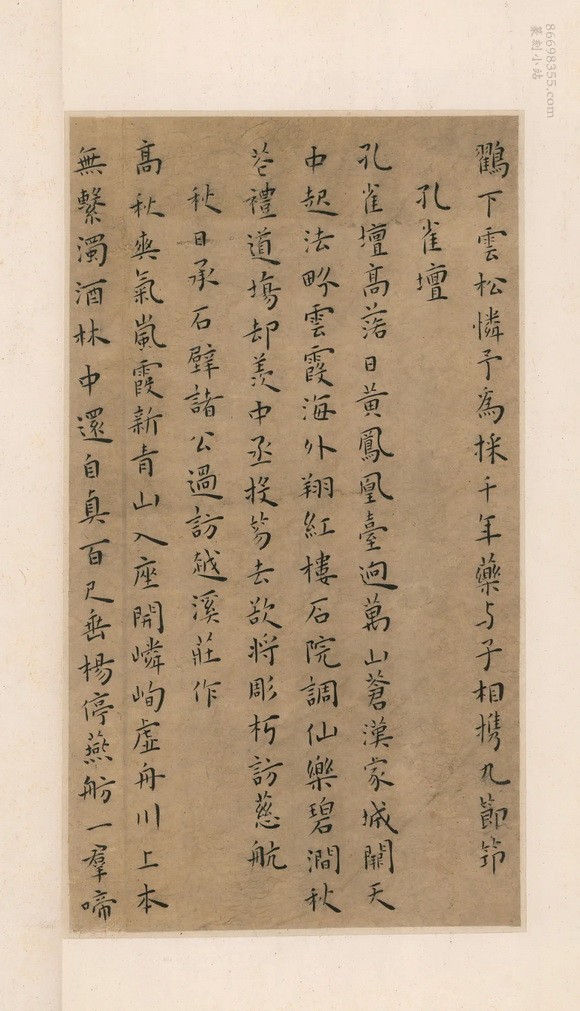 鸛下雲松憐予為採千年藥与子相携九節筇
孔雀壇
孔雀壇高落日黃鳳凰臺迥萬山蒼漢家城闕天
中起法界雲霞海外翔紅樓石院調仙樂碧澗秋
花禮道場却羨中丞投笏去欲將彫朽訪慈航
秋日承石壁諸公過訪越溪莊作
高秋爽氣嵐霞新青山入座開嶙峋虛舟川上本
無繫濁酒林中還自真百尺垂楊停燕舫一羣啼
86698355.com
篆刻小站